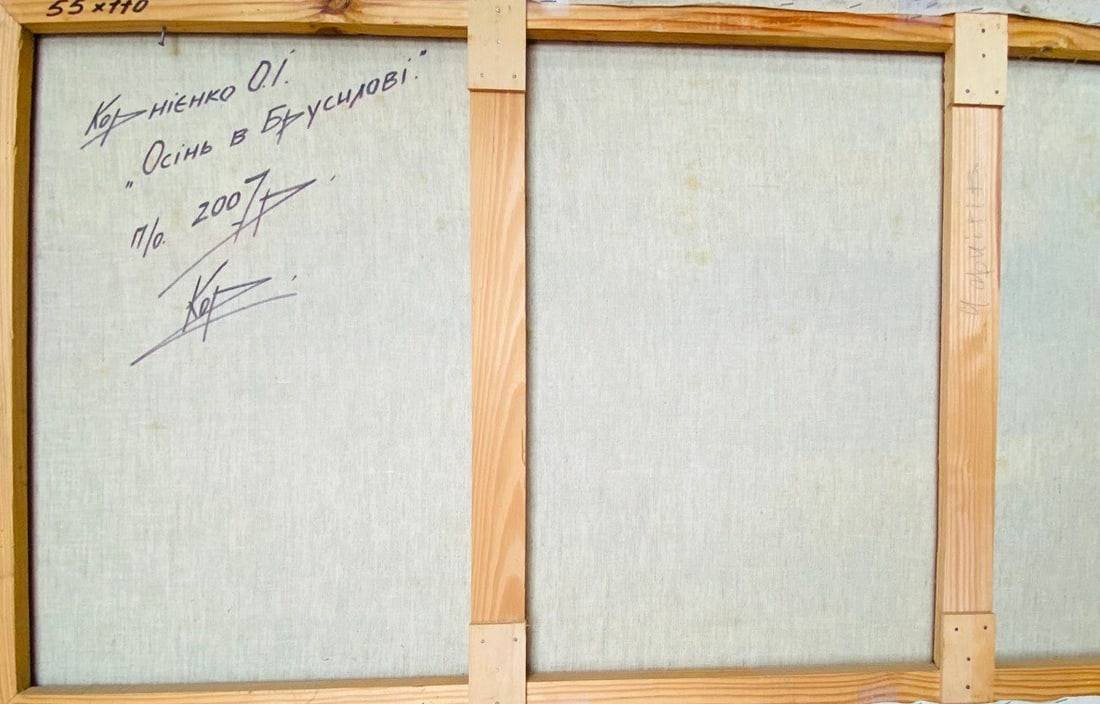 55×110
Корнієнко О.І.
"Осінь в Брусилові."
п/о. 2007р.
Кор.